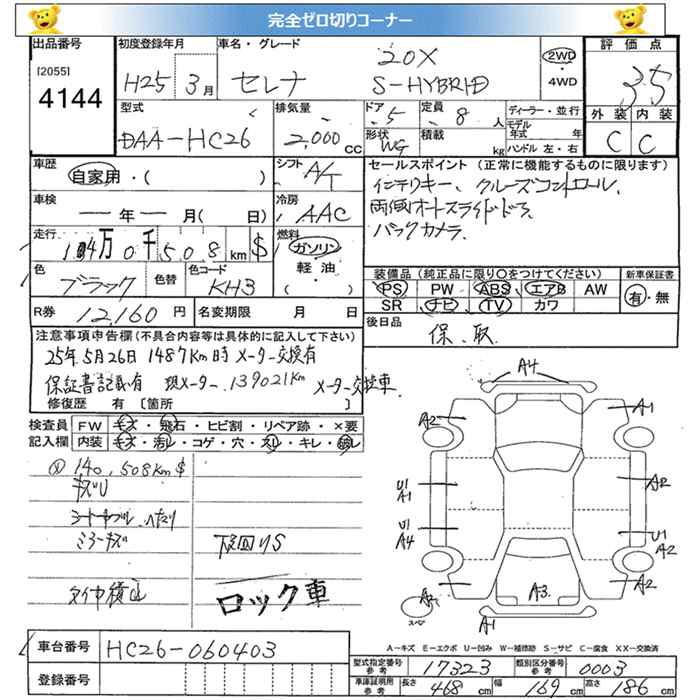 完全ゼロ切りコーナー
出品番号 初度登録年月 車名・グレード 評価点
[2055] 4144 H25年 3月 セレナ 20X S-HYBRID 2WD 4WD 3.5
外装 内装
C C
型式 排気量 ドア・形状 定員 積載 ディーラー・並行
DAA-HC26 2,000cc 5 WG 8人 kg モデル年式 年 ハンドル 左・右
車歴 自家用・( ) シフト A/T
セールスポイント (正常に機能するものに限ります)
インテリキー、クルーズコントロール、
両側オートスライドドア、
バックカメラ、
車検 ー年ー月(ー日) 冷房 AAC
走行 14万0千508km $ 燃料 ガソリン 軽油
色 ブラック 色替 色コード KH3
装備品 (純正品に限り〇をつけてください) 新車保証書
PS PW ABS エアB AW 有・無
SR ナビ TV カワ
R券 12,160円 名変期限 月 日
後日品 保、取
注意事項申告欄(不具合内容等は具体的に記入して下さい)
25年5月26日 1487Km時 メーター交換有
保証書記載有 現メーター 139021Km メーター交換車
修復歴 有 [箇所 ]
検査員記入欄 FW キズ・飛石・ヒビ割・リペア跡・×要
内装 キズ・汚レ・コゲ・穴・スレ・キレ・破レ
140,508Km $
キズU
シート ヘタリ
ミラーキズ 下回りS
タイヤ積込 ロック車
A4
A2 A1
U1 A1 A2
U1 A4 U1 A2
A2 A3 A2
スペア A1
A-キズ E-エクボ U-凹み W-補修跡 S-サビ C-腐食 XX-交換済
車台番号 HC26-060403
登録番号
型式指定番号 参考 17323 類別区分番号 参考 0003
車庫証明用 参考 長さ 468cm 幅 169cm 高さ 186cm